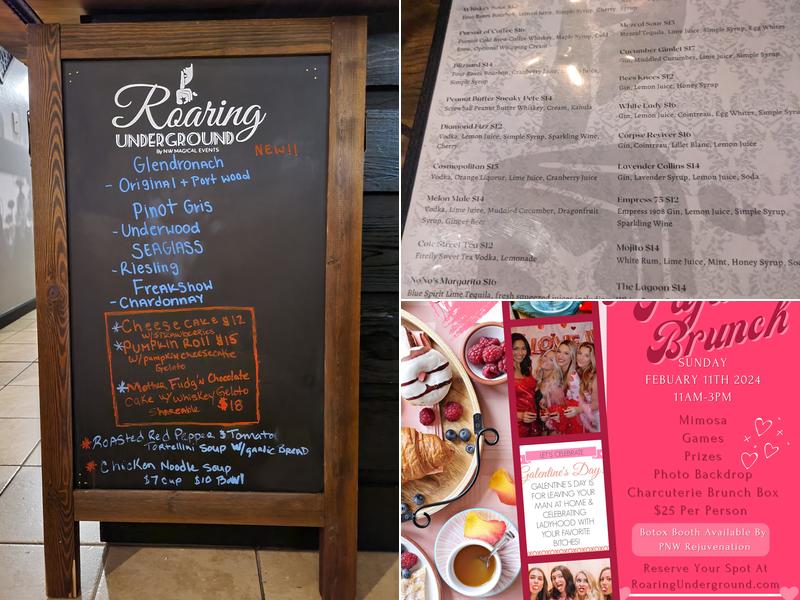 Roaring
UNDERGROUND
By NW MAGICAL EVENTS
NEW!!
Glendronach
- Original + Port wood
Pinot Gris
- Underwood
SEAGLASS
- Riesling
Freakshow
- Chardonnay
*Cheesecake $12
w/ STRAWBERRIES
*Pumpkin Roll $15
w/ pumpkin cheesecake
Gelato
*Motha Fudg'n Chocolate
Cake w/ Whiskey Gelato
Shareable $18
* Roasted Red Pepper & Tomato
Tortellini Soup w/ garlic Bread
* Chicken Noodle Soup
$7 Cup $10 Bowl
Whiskey Sour $12
Four Roses Bourbon, Lemon Juice, Simple Syrup, Cherry
Pursuit of Coffee $16
Pursuit Cold Brew Coffee Whiskey, Maple Syrup, Cold
Brew, Optional Whipping Cream
Blizzard $14
Four Roses Bourbon, Cranberry Juice, Juice,
Simple Syrup
Peanut Butter Sneaky Pete $14
Screwball Peanut Butter Whiskey, Cream, Kahula
Diamond Fizz $12
Vodka, Lemon Juice, Simple Syrup, Sparkling Wine,
Cherry
Cosmopolitan $15
Vodka, Orange Liqueur, Lime Juice, Cranberry Juice
Melon Mule $14
Vodka, Lime Juice, Muddled Cucumber, Dragonfruit
Syrup, Ginger Beer
Cote Street Tea $12
Firefly Sweet Tea Vodka, Lemonade
NoNo's Margarita $16
Blue Spirit Lime Tequila, fresh squeezed juices
Syrup
Mezcal Sour $15
Mezcal Tequila, Lime Juice, Simple Syrup, Egg Whites
Cucumber Gimlet $17
Gin, Muddled Cucumber, Lime Juice, Simple Syrup
Bees Knees $12
Gin, Lemon Juice, Honey Syrup
White Lady $16
Gin, Lemon Juice, Cointreau, Egg Whites, Simple Syrup
Corpse Reviver $16
Gin, Cointreau, Lillet Blanc, Lemon Juice
Lavender Collins $14
Gin, Lavender Syrup, Lemon Juice, Soda
Empress 75 $12
Empress 1908 Gin, Lemon Juice, Simple Syrup
Sparkling Wine
Mojito $14
White Rum, Lime Juice, Mint, Honey Syrup, Soda
The Lagoon $14
Brunch
SUNDAY
FEBUARY 11TH 2024
11AM-3PM
Mimosa
Games
Prizes
Photo Backdrop
Charcuterie Brunch Box
$25 Per Person
Botox Booth Available By
PNW Rejuvenation
Reserve Your Spot At
RoaringUnderground.com
LOVE
LET'S CELEBRATE
Galentine's Day
GALENTINE'S DAY IS
FOR LEAVING YOUR
MAN AT HOME &
CELEBRATING
LADYHOOD WITH
YOUR FAVORITE
BITCHES!
XOXOXOXOXOXOX